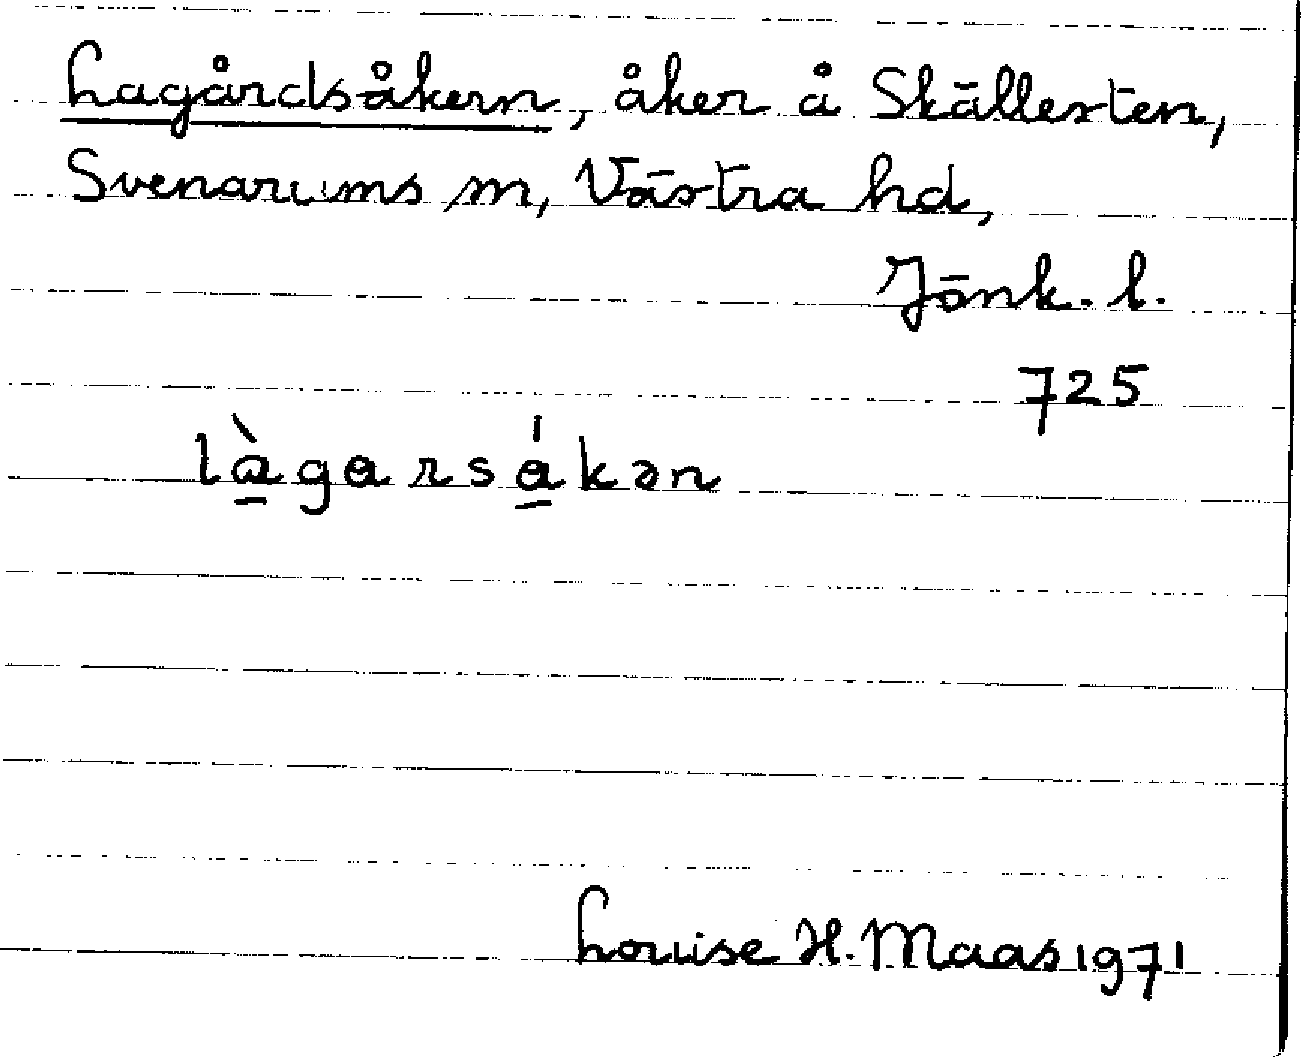 Lagårdsåkern, åker å Skällersten,
Svenarums sn, Västra hd,
Jönk. l.
725
là̱garsá̱kən
Louise H. Maas 1971